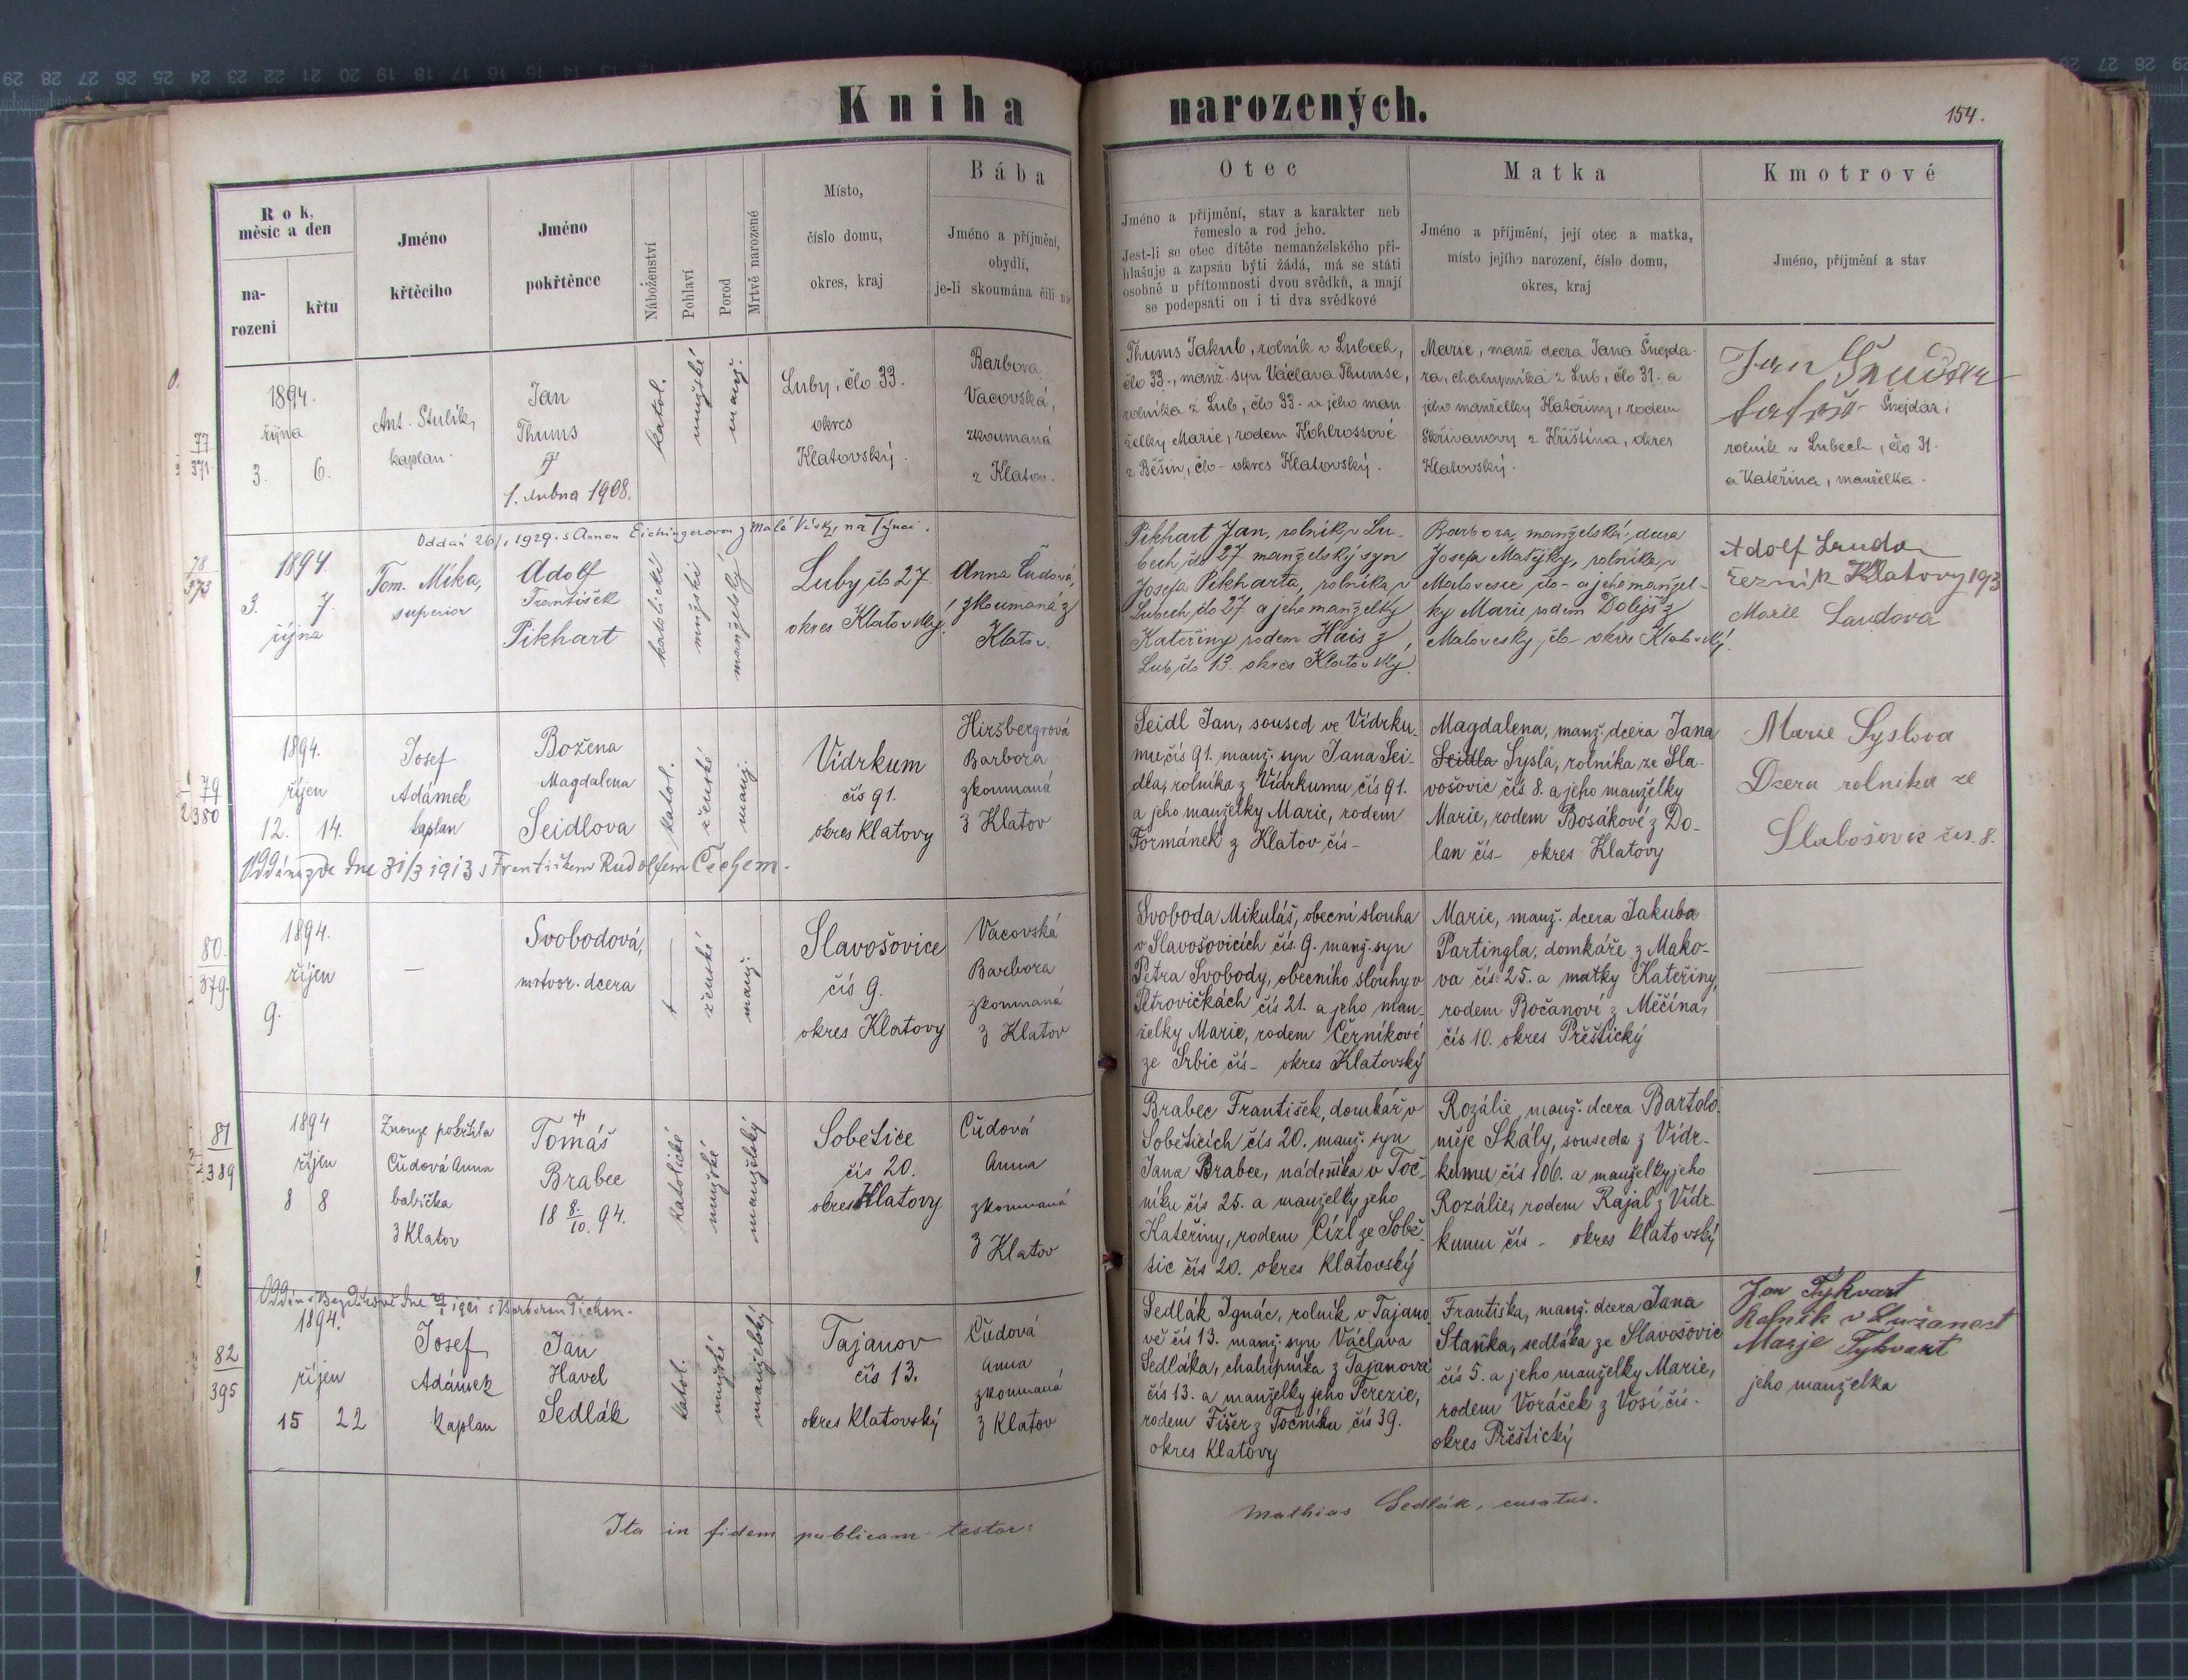 Kniha narozených.
154.
Rok, měsíc a den
narození
křtu
Jméno křtěcího
Jméno pokřtěnce
Náboženství
Pohlaví
Porod
Mrtvě narozené
Místo,
číslo domu,
okres, kraj
Bába
Jméno a příjmění,
obydlí,
je-li skoumána čili
Otec
Jméno a příjmění, stav a karakter neb
řemeslo a rod jeho.
Jest-li se otec dítěte nemanželského při-
hlašuje a zapsán býti žádá, má se státi
osobně u přítomnosti dvou svědků, a mají
se podepsati on i ti dva svědkové
Matka
Jméno a příjmění, její otec a matka,
místo jejího narození, číslo domu,
okres, kraj
Kmotrové
Jméno, příjmění a stav
77
371
1894.
října
3. 6.
Ant. Stulík,
kaplan.
Jan
Thums
1. dubna 1908.
katol.
mužské
manž.
Luby, člo 33.
okres
Klatovský.
Barbora
Vacovská,
zkoumaná
z Klatov.
Thums Jakub, rolník v Lubech,
člo 33., manž. syn Václava Thumse,
rolníka z Lub, člo 33. a jeho man
želky Marie, rodem Kohlrossové
z Běšin, člo - okres Klatovský.
Marie, manž dcera Jana Šnejda-
ra, chalupníka z Lub, člo 31. a
jeho manželky Kateřiny, rodem
Skřivanovy z Křištína, okres
Klatovský.
Jan
Šnejdar,
rolník v Lubech, člo 31.
a Kateřina, manželka.
Oddán 26/1 1929 s Annou Eichingerovou z Malé Vísky, na Týnci.
78
373
1894
3. 7.
října
Tom. Míka,
superior
Adolf
František
Pikhart
katolické
mužské
manželský
Luby člo 27.
okres Klatovský.
Anna Čudová,
zkoumaná z
Klatov.
Pikhart Jan, rolník v Lu-
bech člo 27 manželský syn
Josefa Pikharta, rolníka v
Lubech, člo 27 a jeho manželky
Kateřiny rodem Hais z
Lub člo 13. okres Klatovský.
Barbora, manželská dcera
Josefa Matějky, rolníka v
Malovesce člo - a jeho manžel-
ky Marie rodem Dolejš z
Malovesky, člo - okres Klatovský.
Adolf Lauda
řezník Klatovy 193
Marie Laudova
79
380
1894.
říjen
12. 14.
Josef
Adámek
kaplan
Božena
Magdalena
Seidlova
katol.
ženské
manž.
Vídrkum
čís 91.
okres Klatovy
Hiršbergrová
Barbora
zkoumaná
z Klatov
Seidl Jan, soused ve Vídrku-
mu, čís 91. manž. syn Jana Sei-
dla, rolníka z Vídrkumu, čís 91.
a jeho manželky Marie, rodem
Formánek z Klatov čís -
Magdalena, manž. dcera Jana
Seidla Sysla, rolníka ze Sla-
vošovic čís. 8. a jeho manželky
Marie, rodem Bosákové z Do-
lan čís - okres Klatovy
Marie Syslova
Dcera rolnika ze
Slabošovic čís. 8.
Oddána zde dne 31/3 1913 s Františkem Rudolfem Čechem.
80.
379.
1894.
říjen
9.
—
Svobodová,
mrtvor. dcera
+
ženské
manž.
Slavošovice
čís 9.
okres Klatovy
Vacovská
Barbora
zkoumaná
z Klatov
Svoboda Mikuláš, obecní slouha
v Slavošovicích čís. 9. manž. syn
Petra Svobody, obecního slouhy v
Petrovičkách čís 21. a jeho man-
želky Marie, rodem Černíkové
ze Srbic čís - okres Klatovský
Marie, manž. dcera Jakuba
Partingla, domkáře z Mako-
va čís: 25. a matky Kateřiny,
rodem Bočanové z Měčína,
čís 10. okres Přeštický
—
81
389
1894
říjen
8 8
Znouze pokřtila
Čudová Anna
babička
z Klatov
Tomáš
Brabec
18 8./10. 94.
katolické
mužské
manželský
Sobětice
čís 20.
okres Klatovy
Čudová
Anna
zkoumaná
z Klatov
Brabec František, domkář v
Soběticích čís 20. manž. syn
Jana Brabce, nádeníka v Toč-
níku čís 25. a manželky jeho
Kateřiny, rodem Cízl ze Sobě-
tic čís 20. okres Klatovský
Rozálie, manž. dcera Bartolo-
měje Skály, souseda z Vídr-
kumu čís 106. a manželky jeho
Rozálie, rodem Rajal z Vídr-
kumu čís - okres Klatovský
—
82
395
1894.
říjen
15 22
Josef
Adámek
kaplan
Jan
Havel
Sedlák
katol.
mužské
manželský
Tajanov
čís 13.
okres Klatovský
Čudová
Anna
zkoumaná
z Klatov
Sedlák Ignác, rolník v Tajano-
vě čís 13. manž. syn Václava
Sedláka, chalupníka z Tajanova
čís 13. a manželky jeho Terezie,
rodem Fišer z Točníku čís 39.
okres Klatovy
Františka, manž. dcera Jana
Staňka, sedláka ze Slavošovic
čís 5. a jeho manželky Marie,
rodem Voráček z Vosí čís -
okres Přeštický
Jan Tykvart
Rolník v
Marje Tykvart
jeho manželka
Ita in fidem publicam testor:
Mathias Sedlák, curatus.